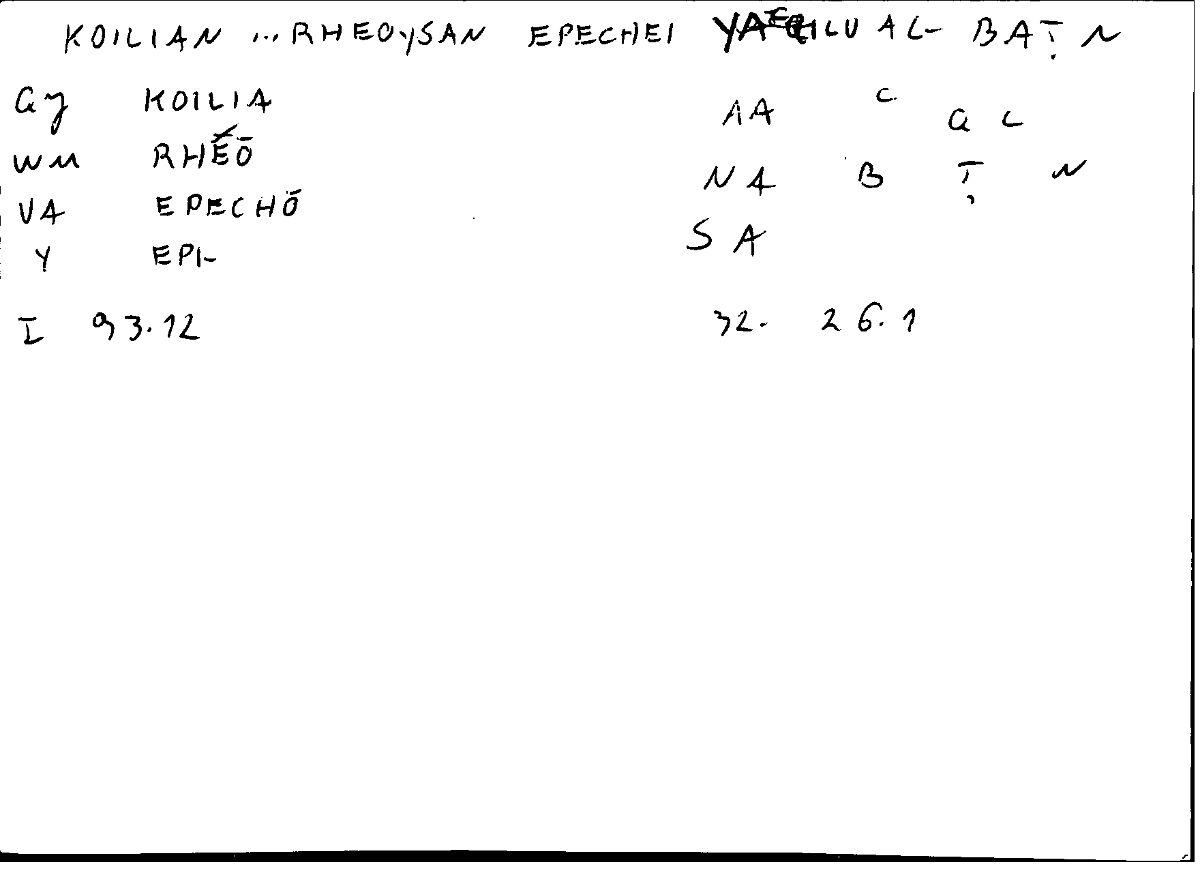 KOILIAN ... RHEOYSAN EPECHEI YAcQILU AL- BAṬN
GJ KOILIA AA c Q L
WM RHEŌ NA B Ṭ N
VA EPECHŌ SA
Y EPI-
I 93.12 32. 26.1